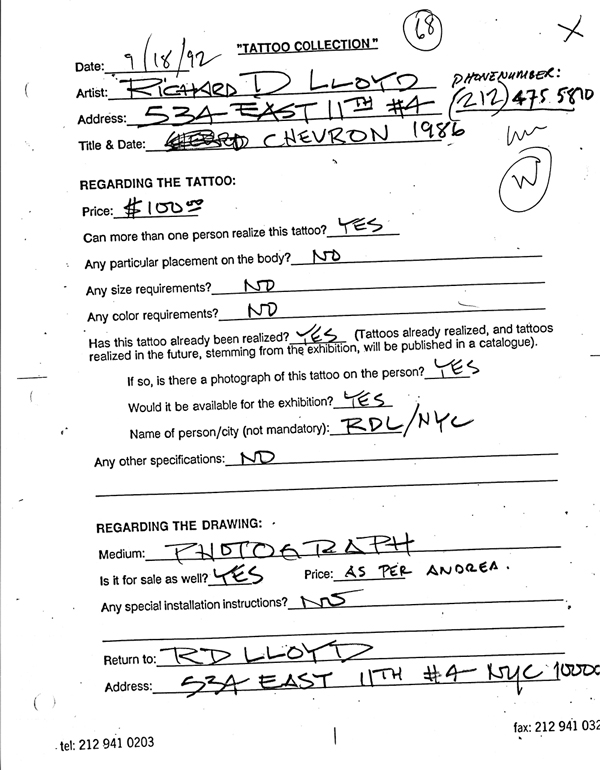 68
"TATTOO COLLECTION"
Date: 9/18/92
Artist: RICHARD D LLOYD
PHONE NUMBER:
Address: 534 EAST 11TH #4 (212) 475 5870
Title & Date: CHEVRON 1986
W
REGARDING THE TATTOO:
Price: $100.00
Can more than one person realize this tattoo? YES
Any particular placement on the body? NO
Any size requirements? NO
Any color requirements? NO
Has this tattoo already been realized? YES (Tattoos already realized, and tattoos
realized in the future, stemming from the exhibition, will be published in a catalogue).
If so, is there a photograph of this tattoo on the person? YES
Would it be available for the exhibition? YES
Name of person/city (not mandatory): RDL/NYC
Any other specifications: NO
REGARDING THE DRAWING:
Medium: PHOTOGRAPH
Is it for sale as well? YES Price: AS PER ANDREA.
Any special installation instructions?
Return to: RD LLOYD
Address: 534 EAST 11TH #4 NYC 1000
tel: 212 941 0203
fax: 212 941 032